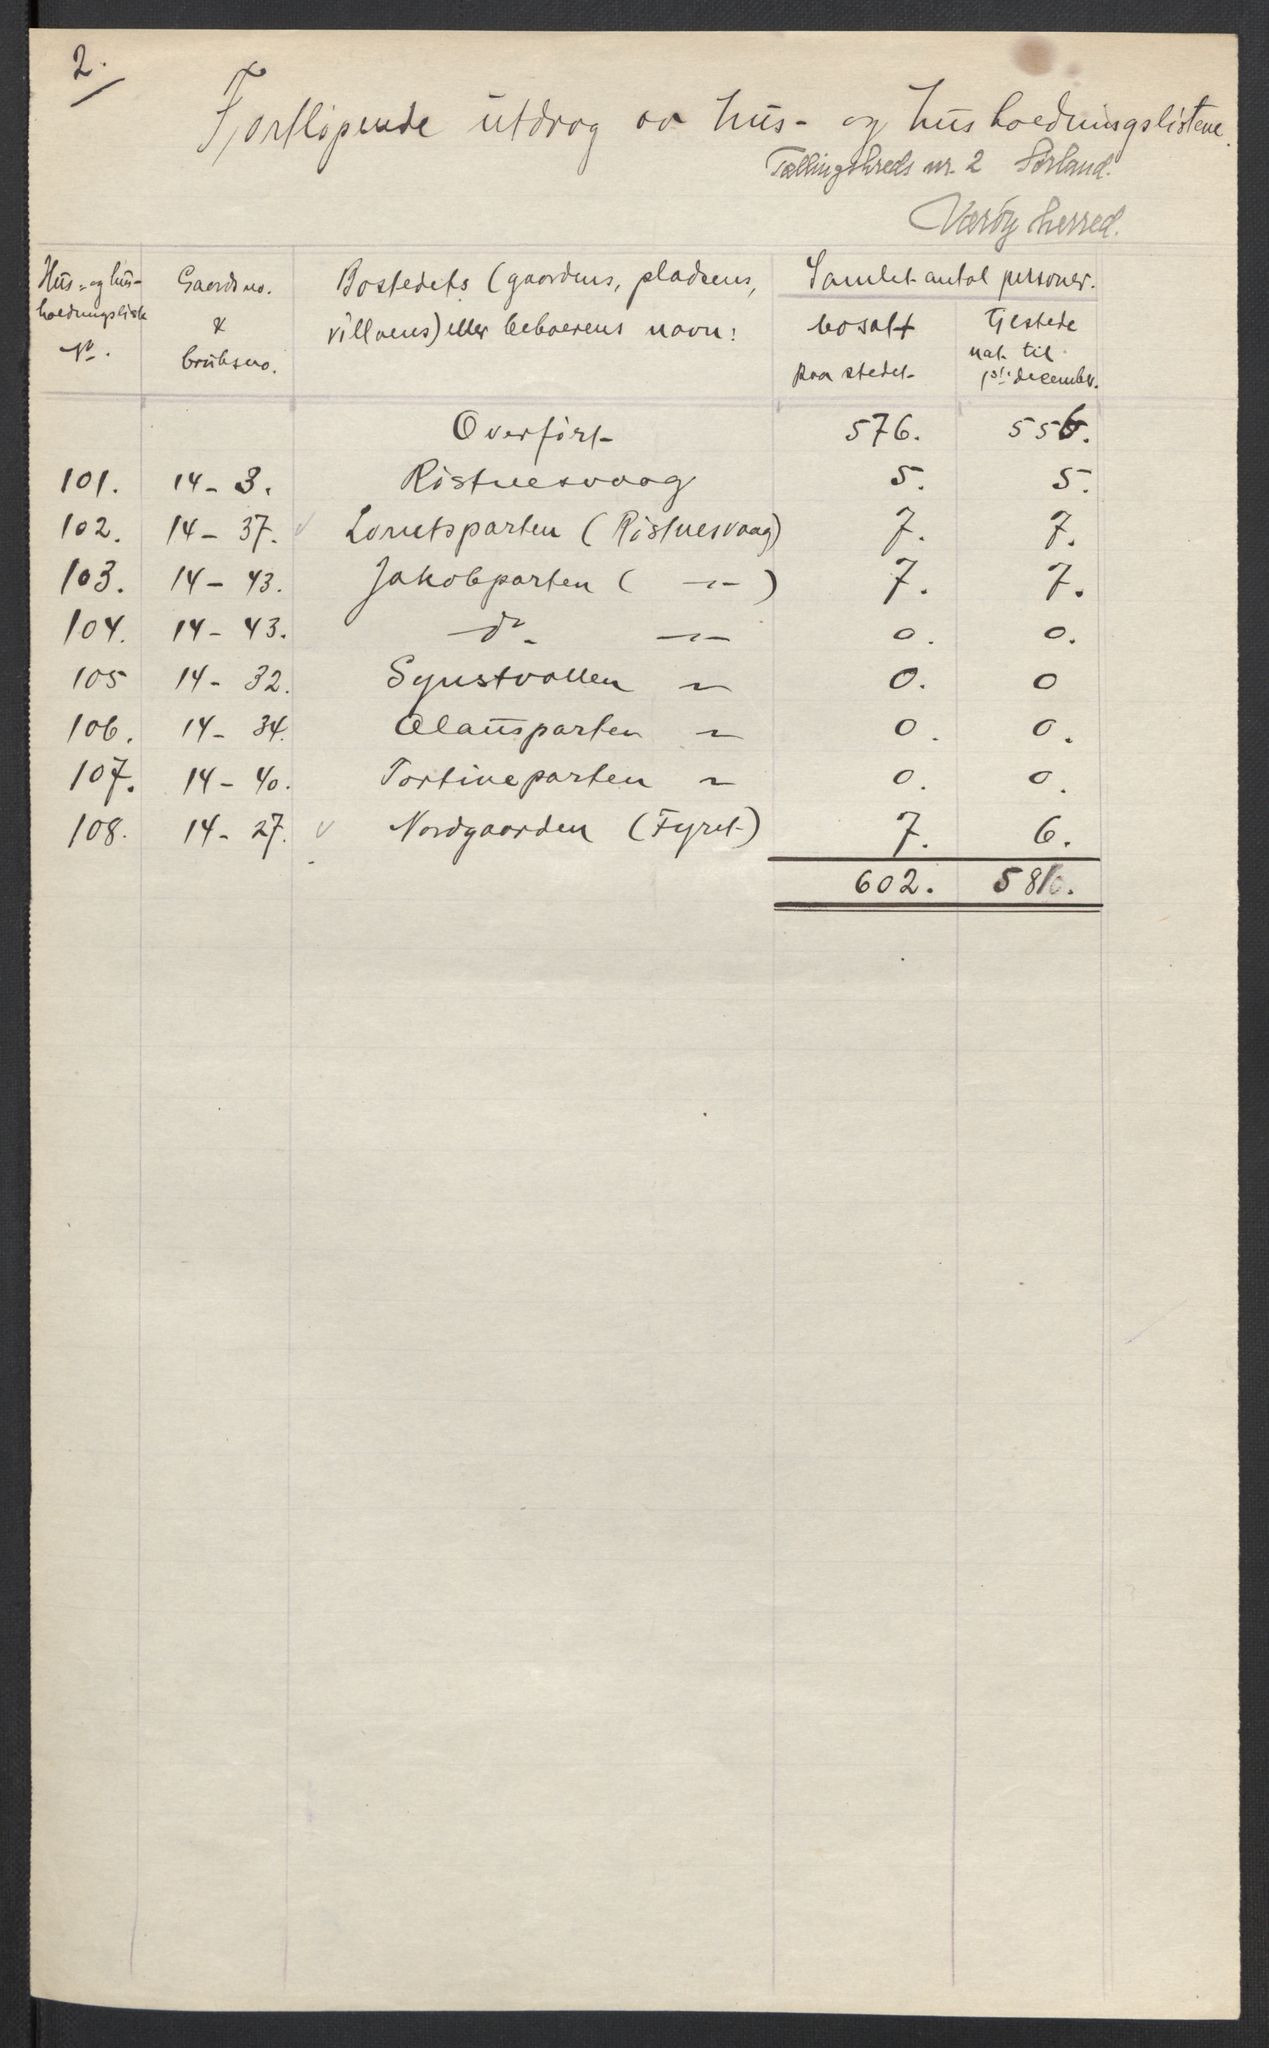 2.
Fortløpende utdrag av hus- og husholdningslistene.
Tællingskreds nr. 2 Sørland.
Værøy herred.
Hus- og hus-
holdningsliste
No.
Gaardsno.
&
bruksno.
Bostedets (gaardens, pladsens,
villaens) eller beboerens navn:
Samlet antal personer.
bosatt
paa stedet
tilstede
nat til
1ste december.
Overført 576. 556.
101. 14 - 3. Røstnesvaag 5. 5.
102. 14 - 37. v Lorntsparten (Røstnesvaag) 7. 7.
103. 14 - 43. Jakobparten ( -"- ) 7. 7.
104. 14 - 43. do -"- 0. 0.
105 14 - 32. Synstvollen " 0. 0
106. 14 - 34. Olausparten " 0. 0.
107. 14 - 40. Tortineparten " 0. 0.
108. 14 - 27. v Nordgaarden (Fyret) 7. 6.
602. 581.